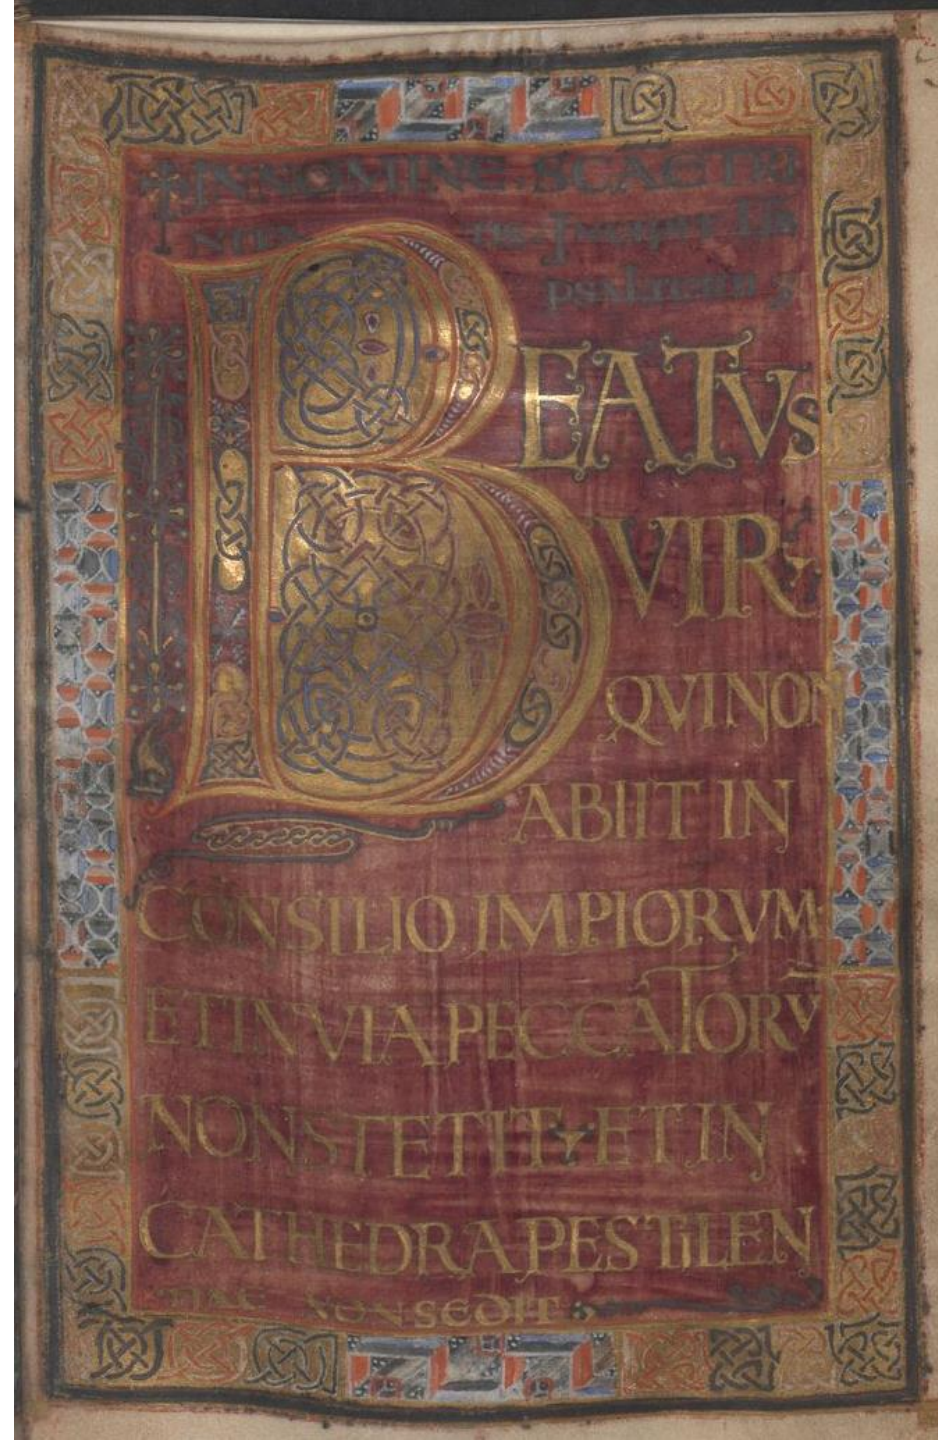 IN NOMINE SCAE TRI
NITA TIS Incipit Lib
psalmorum
BEATVS
VIR·
QVI NON
ABIIT IN
CONSILIO IMPIORVM·
ET IN VIA PECCATORV̅
NON STETIT· ET IN
CATHEDRA PESTILEN
TIAE NON SEDIT